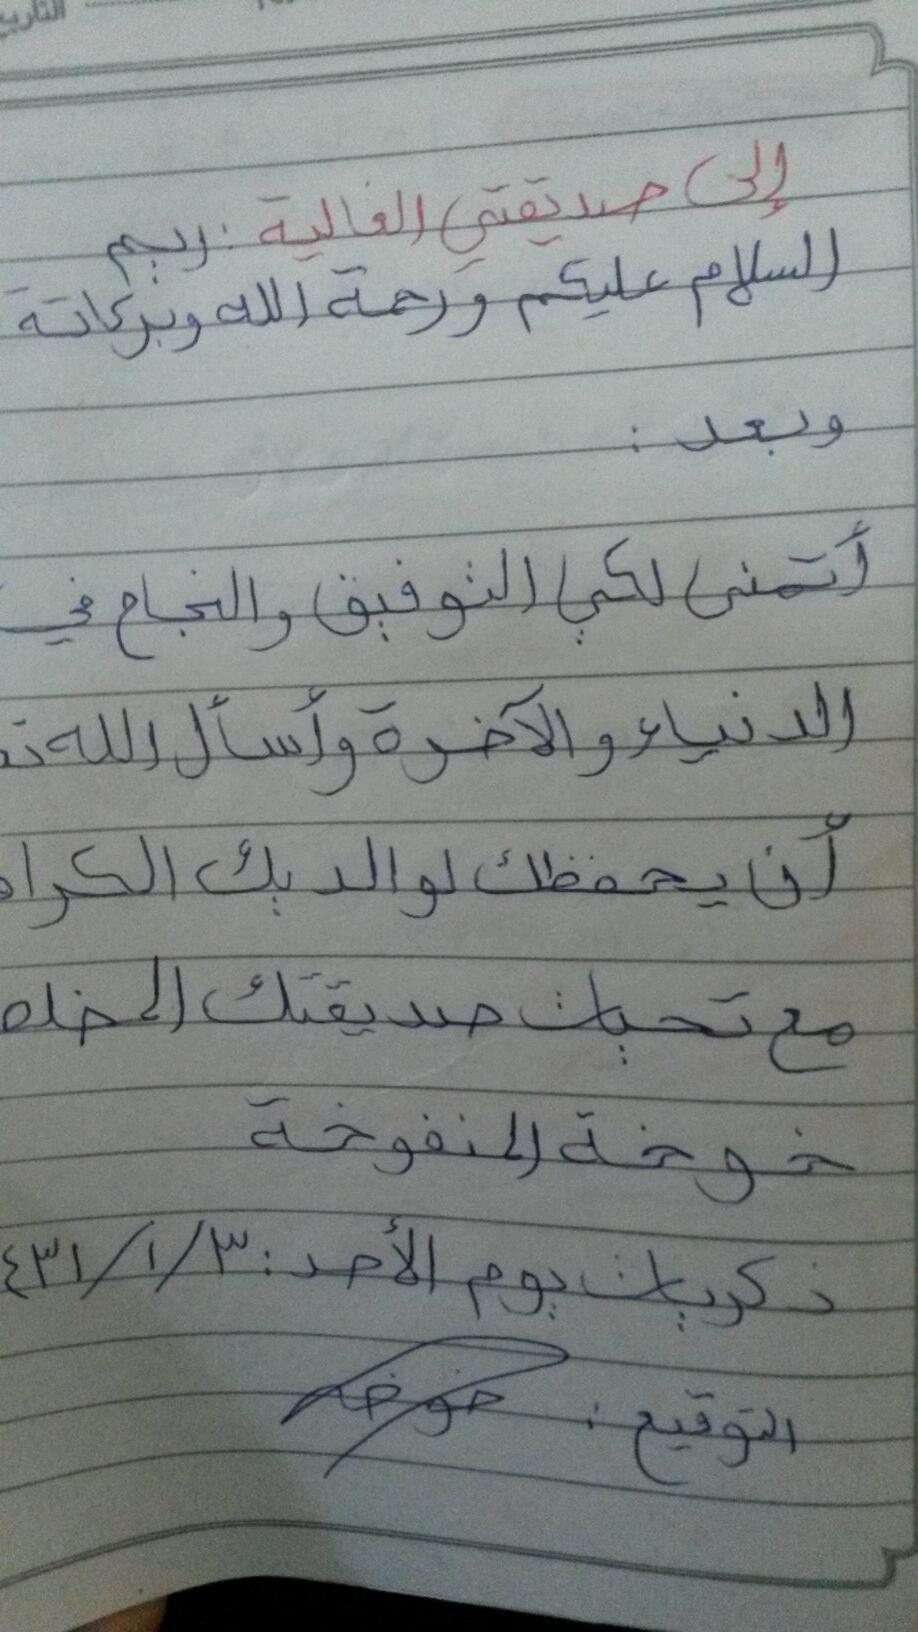 التاريخ
إلى صديقتي الغالية : ريم
السلام عليكم ورحمة الله وبركاتة
وبعد :
أتمنى لكي التوفيق والنجاح في
الدنياء والآخرة وأسأل الله
أن يحفظك لوالديك الكرا
مع تحيات صديقتك
خوخة المنفوخة
ذكريات يوم الأحد : ٣/١/٤٣١
التوقيع : خوخه